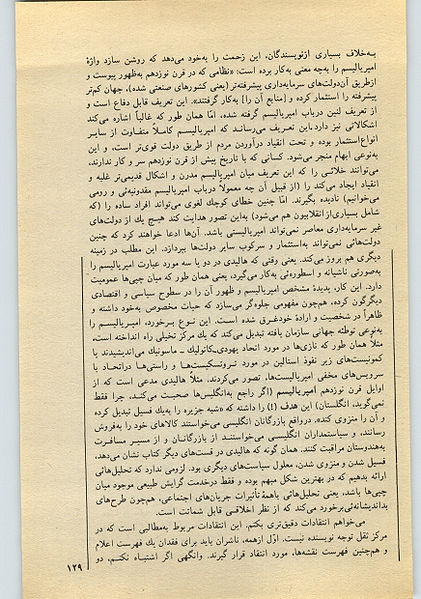 به‌خلاف بسیاری ازنویسندگان، این زحمت را به‌خود می‌دهد که روشن سازد واژهٔ
امپریالیسم را به‌چه معنی به‌کار برده است: «نظامی که در قرن نوزدهم به‌ظهور پیوست و
ازطریق آن‌دولت‌های سرمایه‌داری پیشرفته‌تر (یعنی کشورهای صنعتی شده)، جهان کم‌تر
پیشرفته را استثمار کرده و [منابع آن را] به‌کار گرفتند». این تعریف قابل دفاع است و
از تعریف لنین درباب امپریالیسم گرفته شده، امّا همان طور که غالباً اشاره می‌کند
اشکالاتی نیز دارد. این تعریف می‌رساند که امپریالیسم کاملاً متفاوت از سایر
انواع‌استثمار بوده و تحت انقیاد درآوردن مردم از طریق دولت قوی‌تر است، و این
به‌نوعی ابهام منجر می‌شود. کسانی که با تاریخ پیش از قرن نوزدهم سر و کار ندارند،
می‌توانند خلائی را که این تعریف میان امپریالیسم مدرن و اشکال قدیمی‌تر غلبه و
انقیاد ایجاد می‌کند را (از قبیل آن چه معمولاً درباب امپریالیسم مقدونیه‌ئی و رومی
می‌خوانیم) نادیده بگیرند. امّا چنین خطای کوچک لغوی می‌تواند افراد ساده را (که
شامل بسیاری‌ازانقلابیون هم می‌شود) به‌این تصور هدایت کند هیچ یك از دولت‌های
غیر سرمایه‌داری معاصر نمی‌تواند امپریالیستی باشد. آن‌ها ادعا خواهند کرد که چنین
دولت‌هائی نمی‌تواند به‌استثمار و سرکوب سایر دولت‌ها بپردازد. این مطلب در زمینه
دیگری هم بروز می‌کند. یعنی وقتی که هالیدی در دو یا سه مورد عبارت امپریالیسم را
به‌صورتی ناشیانه و اسطوره‌ئی به‌کار می‌گیرد، یعنی همان طور که میان چپی‌ها عمومیت
دارد. این کار، پدیدهٔ مشخص امپریالیسم و ظهور آن را در سطوح سیاسی و اقتصادی
دیگرگون کرده، هم‌چون مفهومی جلوه‌گر می‌سازد که حیات مخصوص به‌خود داشته و
ظاهراً در شخصیت و ارادهٔ خودغرق شده است. این نوع برخورد، امپریالیسم را
به‌نوعی توطئه جهانی سازمان یافته تبدیل می‌کند که یك مرکز تخیلی راه انداخته است،
مثلاً همان طور که نازی‌ها در مورد اتحاد یهودی‌ـ‌کاتولیك ـ ماسونیك می‌اندیشیدند یا
کمونیست‌های زیر نفوذ استالین در مورد تروتسکیست‌ها و راستی‌ها دراتحاد با
سرویس‌های مخفی امپریالیست‌ها، تصور می‌کردند. مثلاً هالیدی مدعی است که از
اوایل قرن نوزدهم امپریالیسم (اگر راجع به‌انگلیس‌ها صحبت می‌کند، چرا فقط
نمی‌گوید، انگلستان) این هدف (!) را داشته که «شبه جزیره را به‌یك فسیل تبدیل کرده
و آن را منزوی کند». درواقع بازرگانان انگلیسی می‌خواستند کالاهای خود را به‌فروش
رسانند، و سیاستمداران انگلیسی می‌خواستند از بازرگانان و از مسیر مسافرت
به‌هندوستان مراقبت کنند. همان گونه که هالیدی در قست‌های دیگر کتاب نشان می‌دهد،
فسیل شدن و منزوی شدن، معلول سیاست‌های دیگری بود. لزومی ندارد که تحلیل‌هائی
ارائه بدهیم که در بهترین شکل مبهم بوده و فقط درخدمت گرایش طبیعی موجود میان
چپی‌ها باشد، یعنی تحلیل‌هائی باهمهٔ تأثیرات جریان‌های اجتماعی، هم‌چون طرح‌های
بداندیشانه‌ئی‌برخورد می‌کند که از نظر اخلاقی قابل شماتت است.
می‌خواهم انتقادات دقیق‌تری بکنم. این انتقادات مربوط به‌مطالبی است که در
مرکز ثقل توجه نویسنده نیست. اوّل ازهمه، ناشران باید برای فقدان یك فهرست اعلام
و هم‌چنین فهرست نقشه‌ها، مورد انتقاد قرار گیرند. وانگهی اگر اشتباه نکنم، دو
۱۲۹